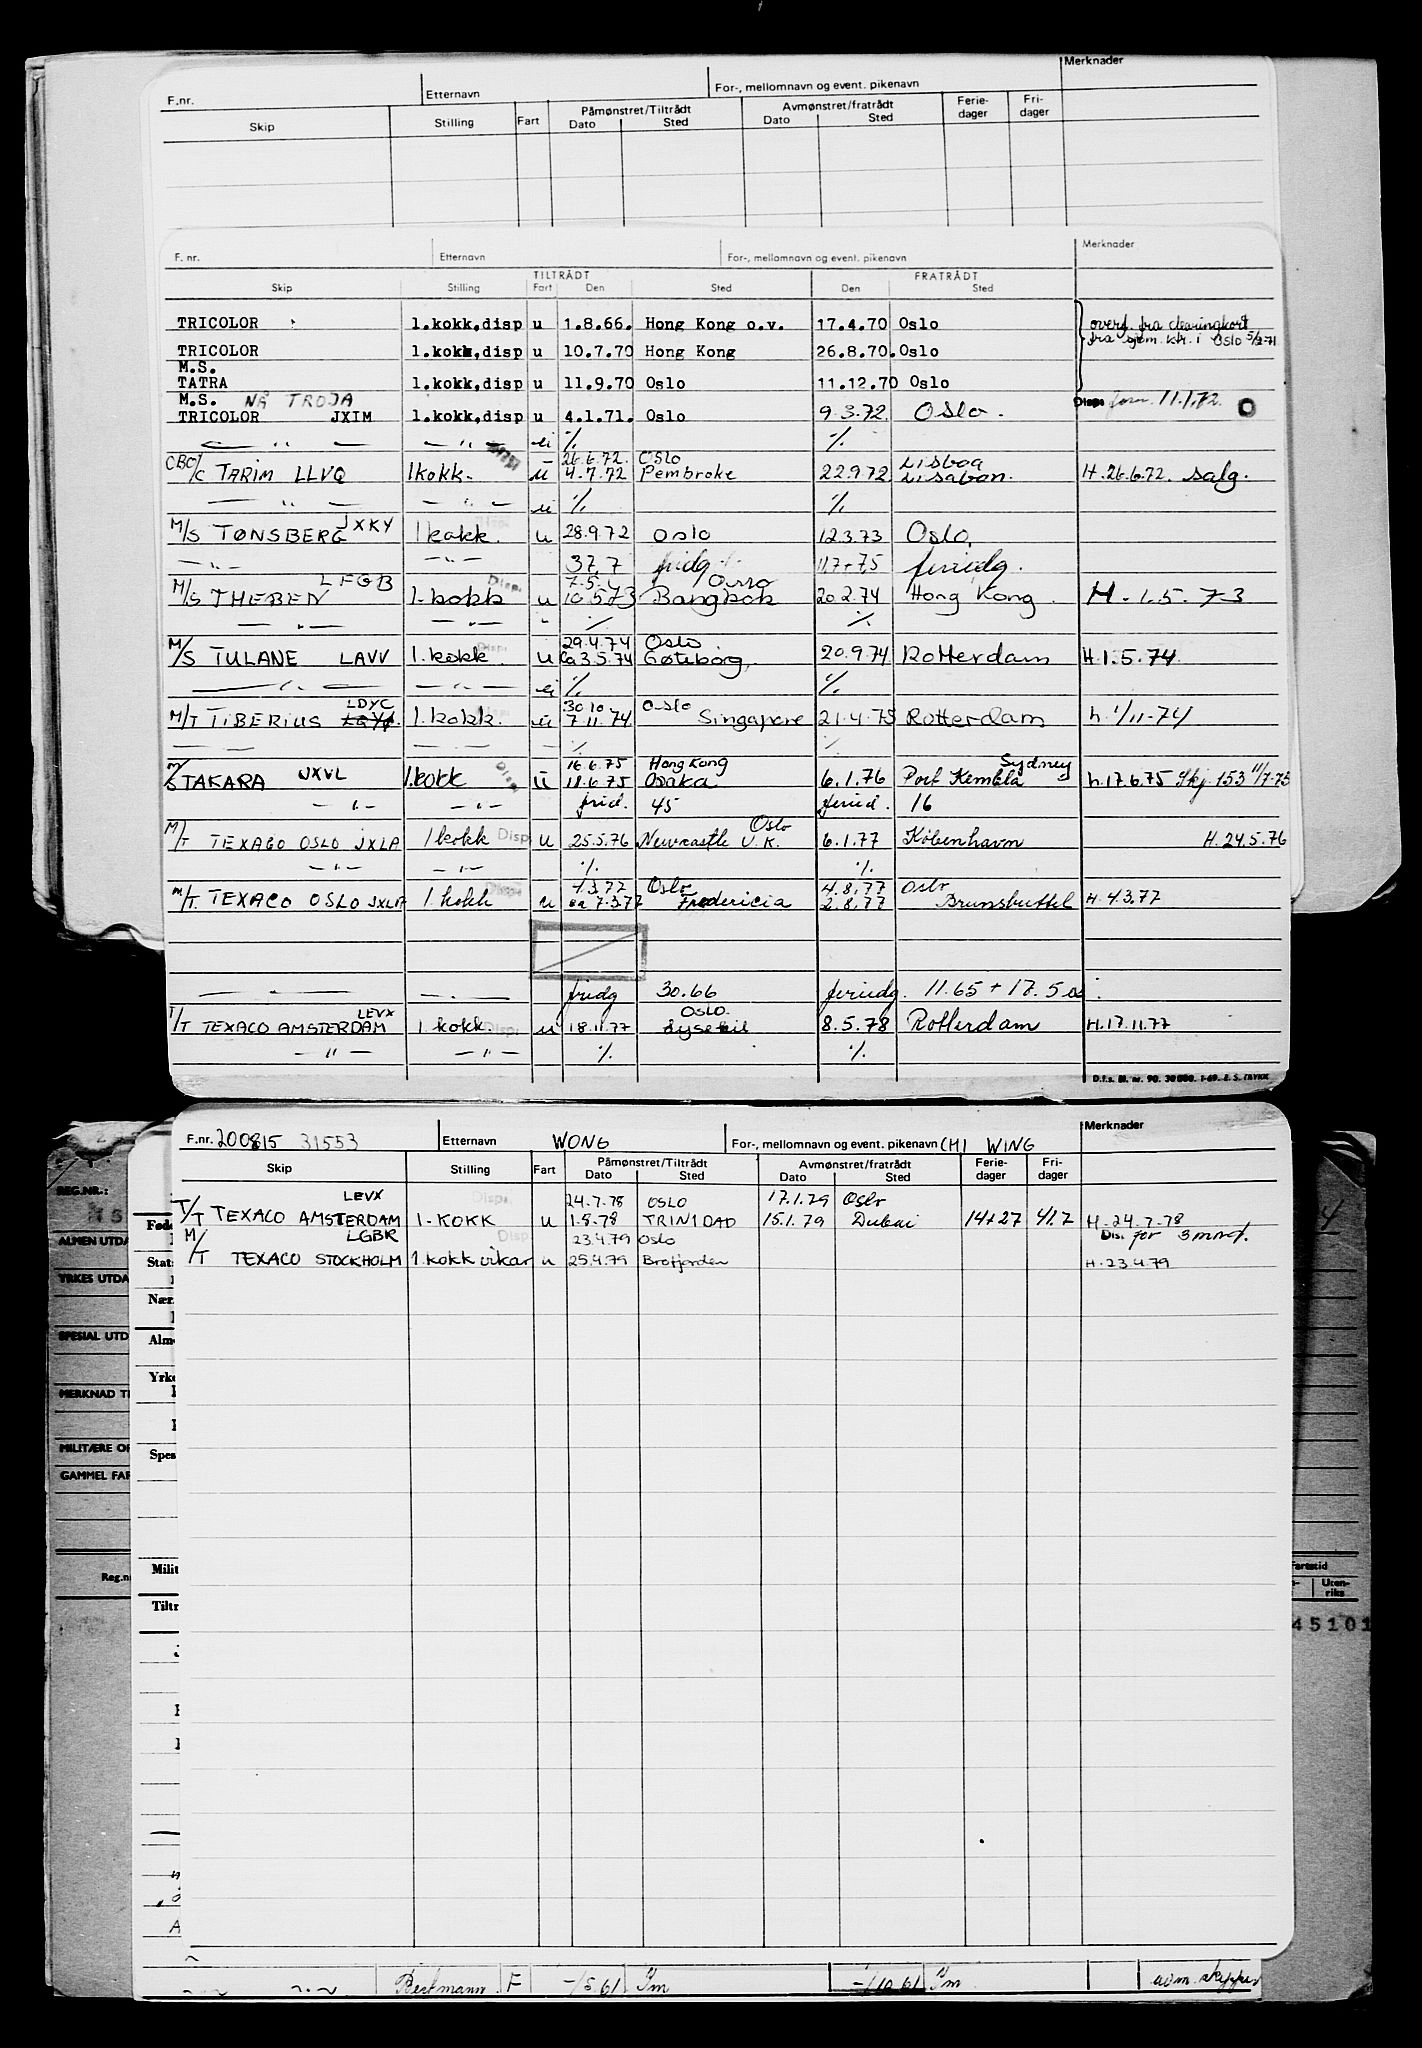 Merknader
F.nr. Etternavn For-, mellomnavn og event. pikenavn
Skip Stilling Fart Påmønstret/Tiltrådt Dato Sted Avmønstret/fratrådt Dato Sted Ferie-dager Fri-dager
F. nr. Etternavn For-, mellomnavn og event. pikenavn Merknader
TILTRÅDT FRATRÅDT
Skip Stilling Fart Den Sted Den Sted
TRICOLOR 1.kokk,disp u 1.8.66. Hong Kong o.v. 17.4.70 Oslo overf. fra clearingkort
fra sjøm. ktr. i Oslo 5/2-71
TRICOLOR 1.kokk,disp u 10.7.70 Hong Kong 26.8.70. Oslo
M.S.
TATRA 1.kokk,disp u 11.9.70 Oslo 11.12.70 Oslo
M.S. NÅ TROJA
TRICOLOR JXIM 1.kokk,disp u 4.1.71. Oslo 9.3.72 Oslo. Disp. 11.1.72.
— " — — " — ei % %
26.6.72. Oslo Lisboa
CBO/C TARIM LLVQ 1kokk. u 4.7.72 Pembroke 22.9.72 Lisabon. H.26.6.72. salg.
— " — — " — ei % %
M/S TØNSBERG JXKY 1kokk. u 28.9.72 Oslo 12.3.73 Oslo.
— " — — " — 37,7 fridg 11,7+7,5 feriedg.
LFGB Disp. 7.5. Oslo
M/S THEBEN 1.kokk u 10.5.73 Bangkok 20.2.74 Hong Kong. H.1.5.73
— " — — " — " % %
29.4.74 Oslo
M/S TULANE LAVV 1.kokk u ca 3.5.74 Gøteborg, 20.9.74 Rotterdam H.1.5.74.
— " — — " — ei % %
LDYC 30.10 Oslo
M/T TIBERIUS 1.kokk. u 7.11.74 Singapore 21.4.75 Rotterdam h. 1/11-74
— — — — % %
16.6.75 Hong Kong Sydney
M/S TAKARA JXVL 1.kokk Disp. u 18.6.75 Osaka 6.1.76 Port Kembla h.17.6.75 Skj.153 11/7-75
— " — — " — frid. 45 feried. 16
Oslo
M/T TEXACO OSLO JXLA 1kokk Disp u 25.5.76 Newcastle U.K. 6.1.77 København H.24.5.76
— " — — " — % %
4.3.77 Oslo 4.8.77 Oslo
M/T. TEXACO OSLO JXLA 1.kokk u ca 7.3.77 Fredericia 2.8.77 Brunsbuttel H.4.3.77
— " — — " — fridg 30.66 feriedg. 11.65 + 17.5
LEVX OSLO.
T/T TEXACO AMSTERDAM 1.kokk Disp. u 18.11.77 Lysekil 8.5.78 Rotterdam H.17.11.77
— " — — " — % %
D.f.s. Bl. nr. 90. 30000. 1-69. E. S. TRYKK
Merknader
F.nr. 200815 31553 Etternavn WONG For-, mellomnavn og event. pikenavn (M) WING
Skip Stilling Fart Påmønstret/Tiltrådt Dato Sted Avmønstret/fratrådt Dato Sted Ferie-dager Fri-dager
LEVX Disp. 24.7.78 OSLO 17.1.79 Oslo
T/T TEXACO AMSTERDAM 1.KOKK u 1.8.78 TRINIDAD 15.1.79 Dubai 14+27 41.7 H.24.7.78
LGBR Disp 23.4.79 Oslo Dis. for 3 mnd.
M/T TEXACO STOCKHOLM 1.kokk vikar u 25.4.79 Brofjorden H.23.4.79
REG.NR.:
ALMEN UTDA
YRKES UTDA
SPESIAL UTD
MERKNAD T
MILITÆRE O
GAMMEL FAR
Reg.n
Fød
Stat
Nær
Alm
Yrk
Spes
Milit
Tiltr
Fartstid
Uten-riks
45101
Bestmann F -/5.61 -/10.61 adm. skipper